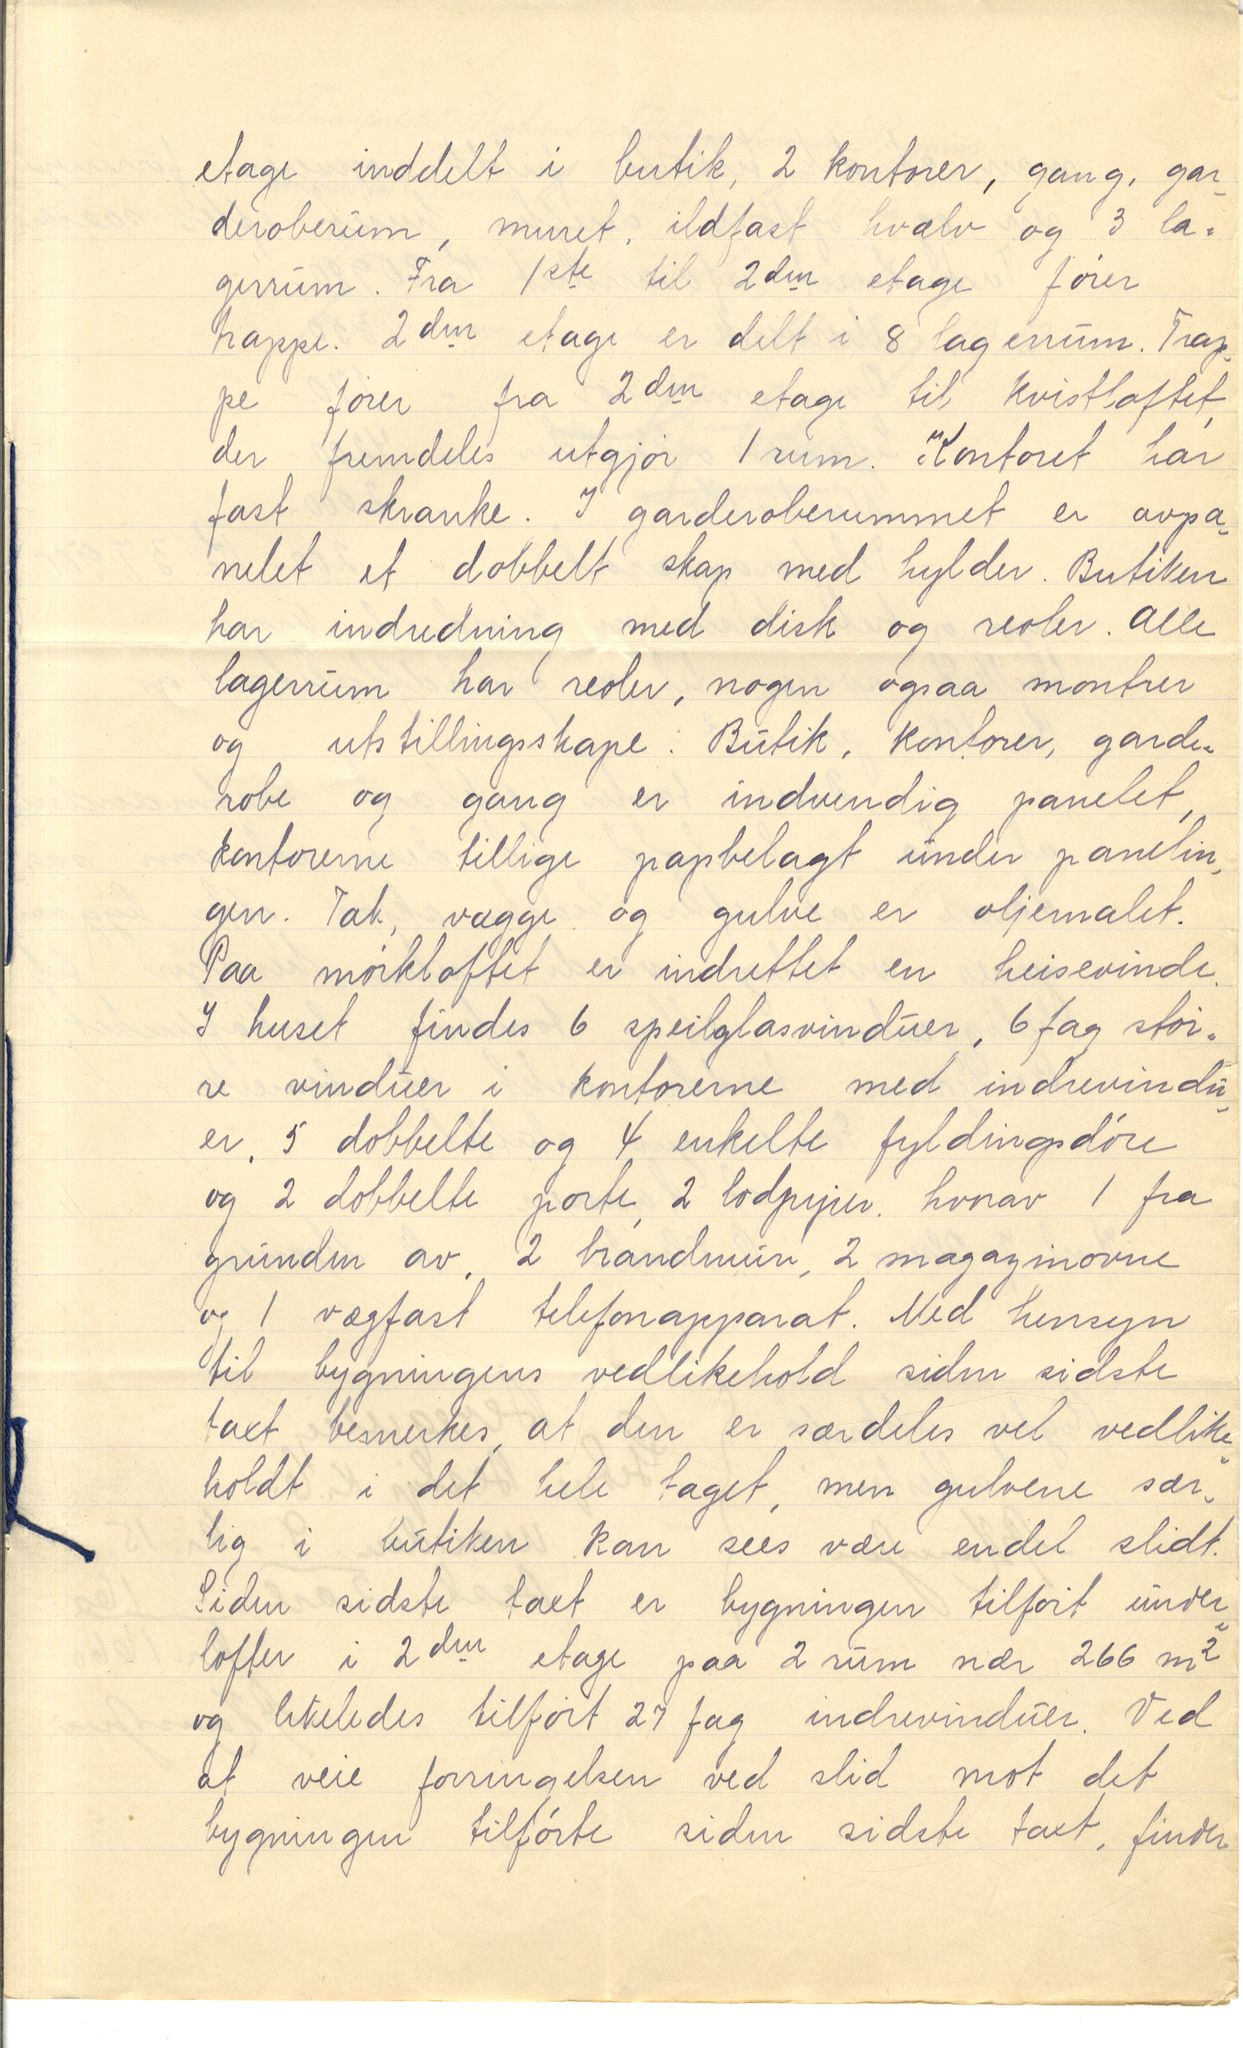 etage inddelt i butik, 2 kontorer, gang, gar-
deroberum, muret, ildfast hvælv og 3 la-
gerrum. Fra 1ste til 2den etage fører
trappe. 2den etage er delt i 8 lagerrum. Trap-
pe fører fra 2den etage til kvistloftet,
der fremdeles utgjør 1 rum. Kontoret har
fast skranke. I garderoberummet er avpa-
nelet et dobbelt skap med hylder. Butiken
har indredning med disk og reoler. Alle
lagerrum har reoler, nogen ogsaa montrer
og utstillingsskape. Butik, kontorer, garde-
robe og gang er indvendig panelet,
kontorerne tillige papbelagt under panelin-
gen. Tak, vægge og gulve er oljemalet.
Paa mørkloftet er indrettet en heisevinde.
I huset findes 6 speilglasvinduer, 6 fag stør-
re vinduer i kontorerne med indrevindu-
er, 5 dobbelte og 4 enkelte fyldingsdøre
og 2 dobbelte porte, 2 lodpiper, hvorav 1 fra
grunden av, 2 brandmur, 2 magazinovne
og 1 vægfast telefonapparat. Med hensyn
til bygningens vedlikehold siden sidste
taxt bemerkes, at den er særdeles vel vedlike-
holdt i det hele taget, men gulvene sær-
lig i butiken kan sees være endel slidt.
Siden sidste taxt er bygningen tilført under-
lofter i 2den etage paa 2 rum nær 266 m2
og likeledes tilført 27 fag indrevinduer. Ved
at veie forringelsen ved slid mot det
bygningen tilførte siden sidste taxt, finder